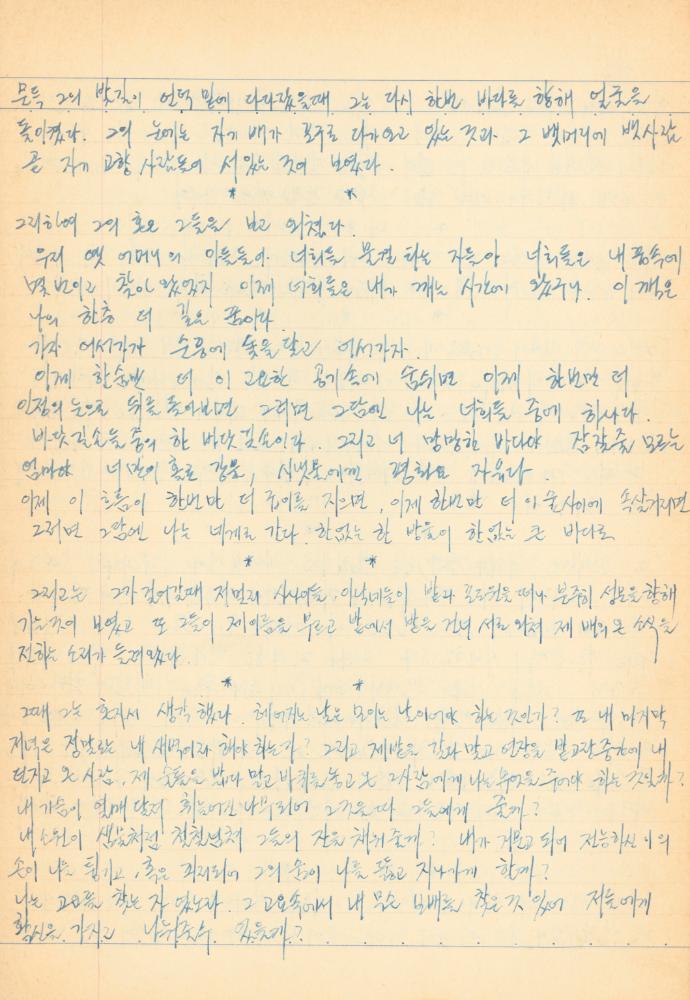 문득 그의 발길이 언덕 밑에 다다랐을때 그는 다시 한번 바다를 향해 얼굴을
돌이켰다. 그의 눈에는 자기 배가 포구로 다가오고 있는 것과 그 뱃머리에 뱃사람
곧 자기 고향 사람들이 서있는 것이 보였다.
* *
그리하여 그의 혼으로 그들을 보고 외쳤다.
우리 옛 어머니의 아들들아 너희들 물결 타는 자들아 너희들은 내 꿈속에
몇번이고 찾아 왔었지 이제 너희들은 내가 깨는 시간에 왔구나. 이 깸은
나의 한층 더 깊은 꿈이다
가자 어서가자 순풍에 돛을 달고 어서가자.
이제 한숨만 더 이 고요한 공기속에 숨쉬면 이제 한번만 더
인정의 눈으로 뒤를 돌아보면 그러면 그담엔 나는 너희들 중에 하나다.
바닷길손들 중의 한 바닷길손이다. 그리고 너 망망한 바다야 잠잘줄 모르는
엄마야 너만이 홀로 강물, 시냇물에겐 평화요 자유다.
이제 이 흐름이 한번만 더 굽이를 지으면, 이제 한번만 더 이 숲사이에 속살거리면
그러면 그담엔 나는 네게로 간다. 한없는 한 방울이 한없는 큰 바다로
* *
그리고는 그가 걸어갈때 저멀리 사나이들, 아낙네들이 밭과 포도원을 떠나 분주히 성문을 향해
가는것이 보였고 또 그들이 제이름을 부르고 밭에서 밭을 건너 서로 외쳐 제 배의 온 소식을
전하는 소리가 들려왔다.
* *
그때 그는 혼자서 생각했다. 헤어지는 날은 모이는 날이어야 하는 것인가? 또 내 마지막
저녁은 정말로는 내 새벽이라 해야 하는가? 그리고 제밭을 갈다 말고 연장을 밭고랑중간에 내
던지고 온 사람, 제 술틀을 밟다 말고 바퀴를 놓고 온 그사람에게 나는 무엇을 주어야 하는 것일까?
내 가슴이 열매 달려 휘늘어진 나무되어 그것을 따 그들에게 줄까?
내 소원이 샘물처럼 철철넘쳐 그들의 잔을 채워줄까? 내가 거문고 되어 전능하신 이의
손이 나를 튕기고, 혹은 피리되어 그의 숨이 나를 뚫고 지나가게 할까?
나는 고요를 찾는 자 였노라. 그 고요속에서 내 무슨 보배를 찾은것 있어 저들에게
확신을 가지고 나눠줄수 있을까?